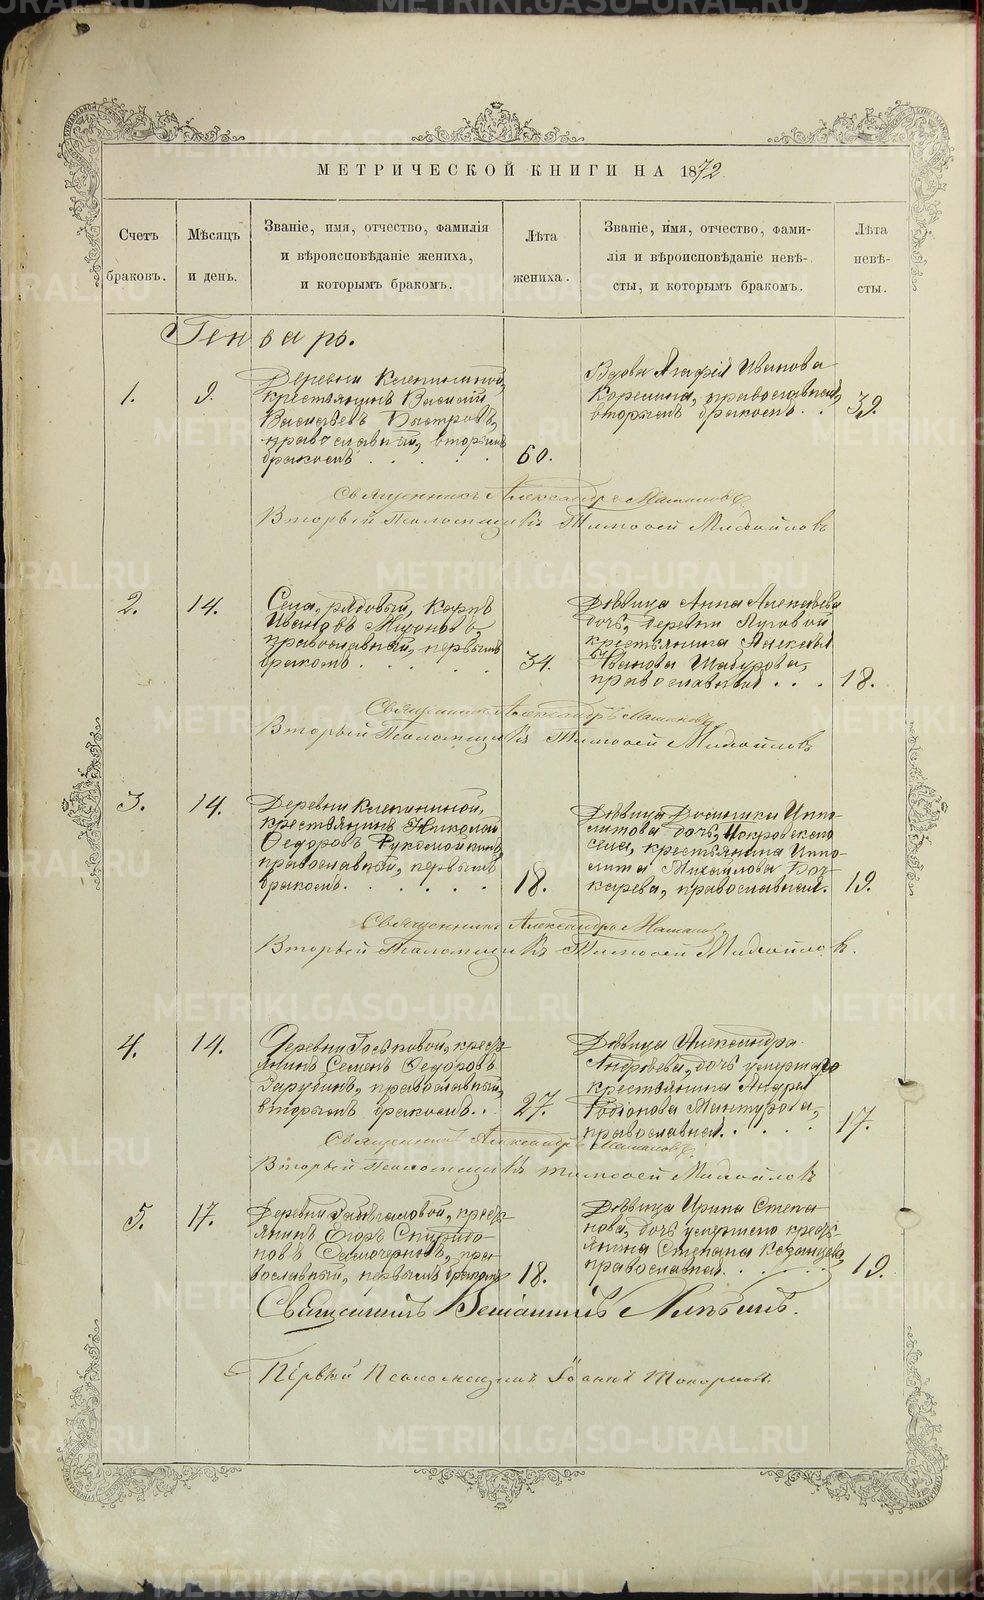 МЕТРИЧЕСКОЙ КНИГИ НА 1872
Счетъ браковъ.
Мѣсяцъ и день.
Званіе, имя, отчество, фамилія
и вѣроисповѣданіе жениха,
и которымъ бракомъ.
Лѣта жениха.
Званіе, имя, отчество, фами-
лія и вѣроисповѣданіе невѣ-
сты, и которымъ бракомъ.
Лѣта невѣ-
сты.
Генварь.
1.
9.
Деревни Клепининой,
крестьянинъ Василій
Васильевъ Быстровъ,
православный, вторымъ
бракомъ
60.
Вдова Агафія Иванова
Корелина, православная,
вторымъ бракомъ
39.
Священникъ Александръ
Вторый Псаломщикъ Тимоѳей Михайловъ
2.
14.
Села, рядовый, Карпъ
Ивановъ
православный, первымъ
бракомъ
34.
Дѣвица Анна Алексѣева
дочь, деревни Луговой
крестьянина Алексѣя
Иванова Шабурова,
православная
18.
Священникъ Александръ
Вторый Псаломщикъ Тимоѳей Михайловъ
3.
14.
Деревни Клепининой,
крестьянинъ Николай
Ѳедоровъ Рукомойкинъ,
православный, первымъ
бракомъ
18.
Дѣвица Домника Иппо-
литова дочь, Покровскаго
села, крестьянина Иппо-
лита Михайлова Боч-
карева, православная.
19.
Священникъ Александръ
Вторый Псаломщикъ Тимоѳей Михайловъ.
4.
14.
Деревни Госьковой, кресть-
янинъ Семенъ Ѳедоровъ
Зарубинъ, православный,
вторымъ бракомъ.
27.
Дѣвица Александра
Андреева, дочь умершаго
крестьянина Андрея
Родіонова Мантурова,
православная.
17.
Священникъ Александръ
Вторый Псаломщикъ Тимоѳей Михайловъ
5.
17.
Деревни кресть-
янинъ Егоръ Спиридо-
новъ Самочерновъ, пра-
вославный, первымъ бракомъ
18.
Дѣвица Ирина Степа-
нова, дочь умершаго кресть-
янина Степана Казанцева,
православная.
19.
Священникъ Веніаминъ
Первый Псаломщикъ Іоаннъ Топорковъ.
METRIKI.GASO-URAL.RU